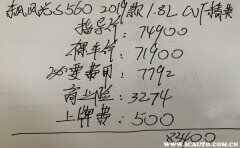 东风风光S560 2019款 1.8L CVT精英
指导价: 74900
裸车价: 71900
必要费用: 7792
商业险: 3274
上牌费: 500
82400
WWW.XCAUTO.COM.CN